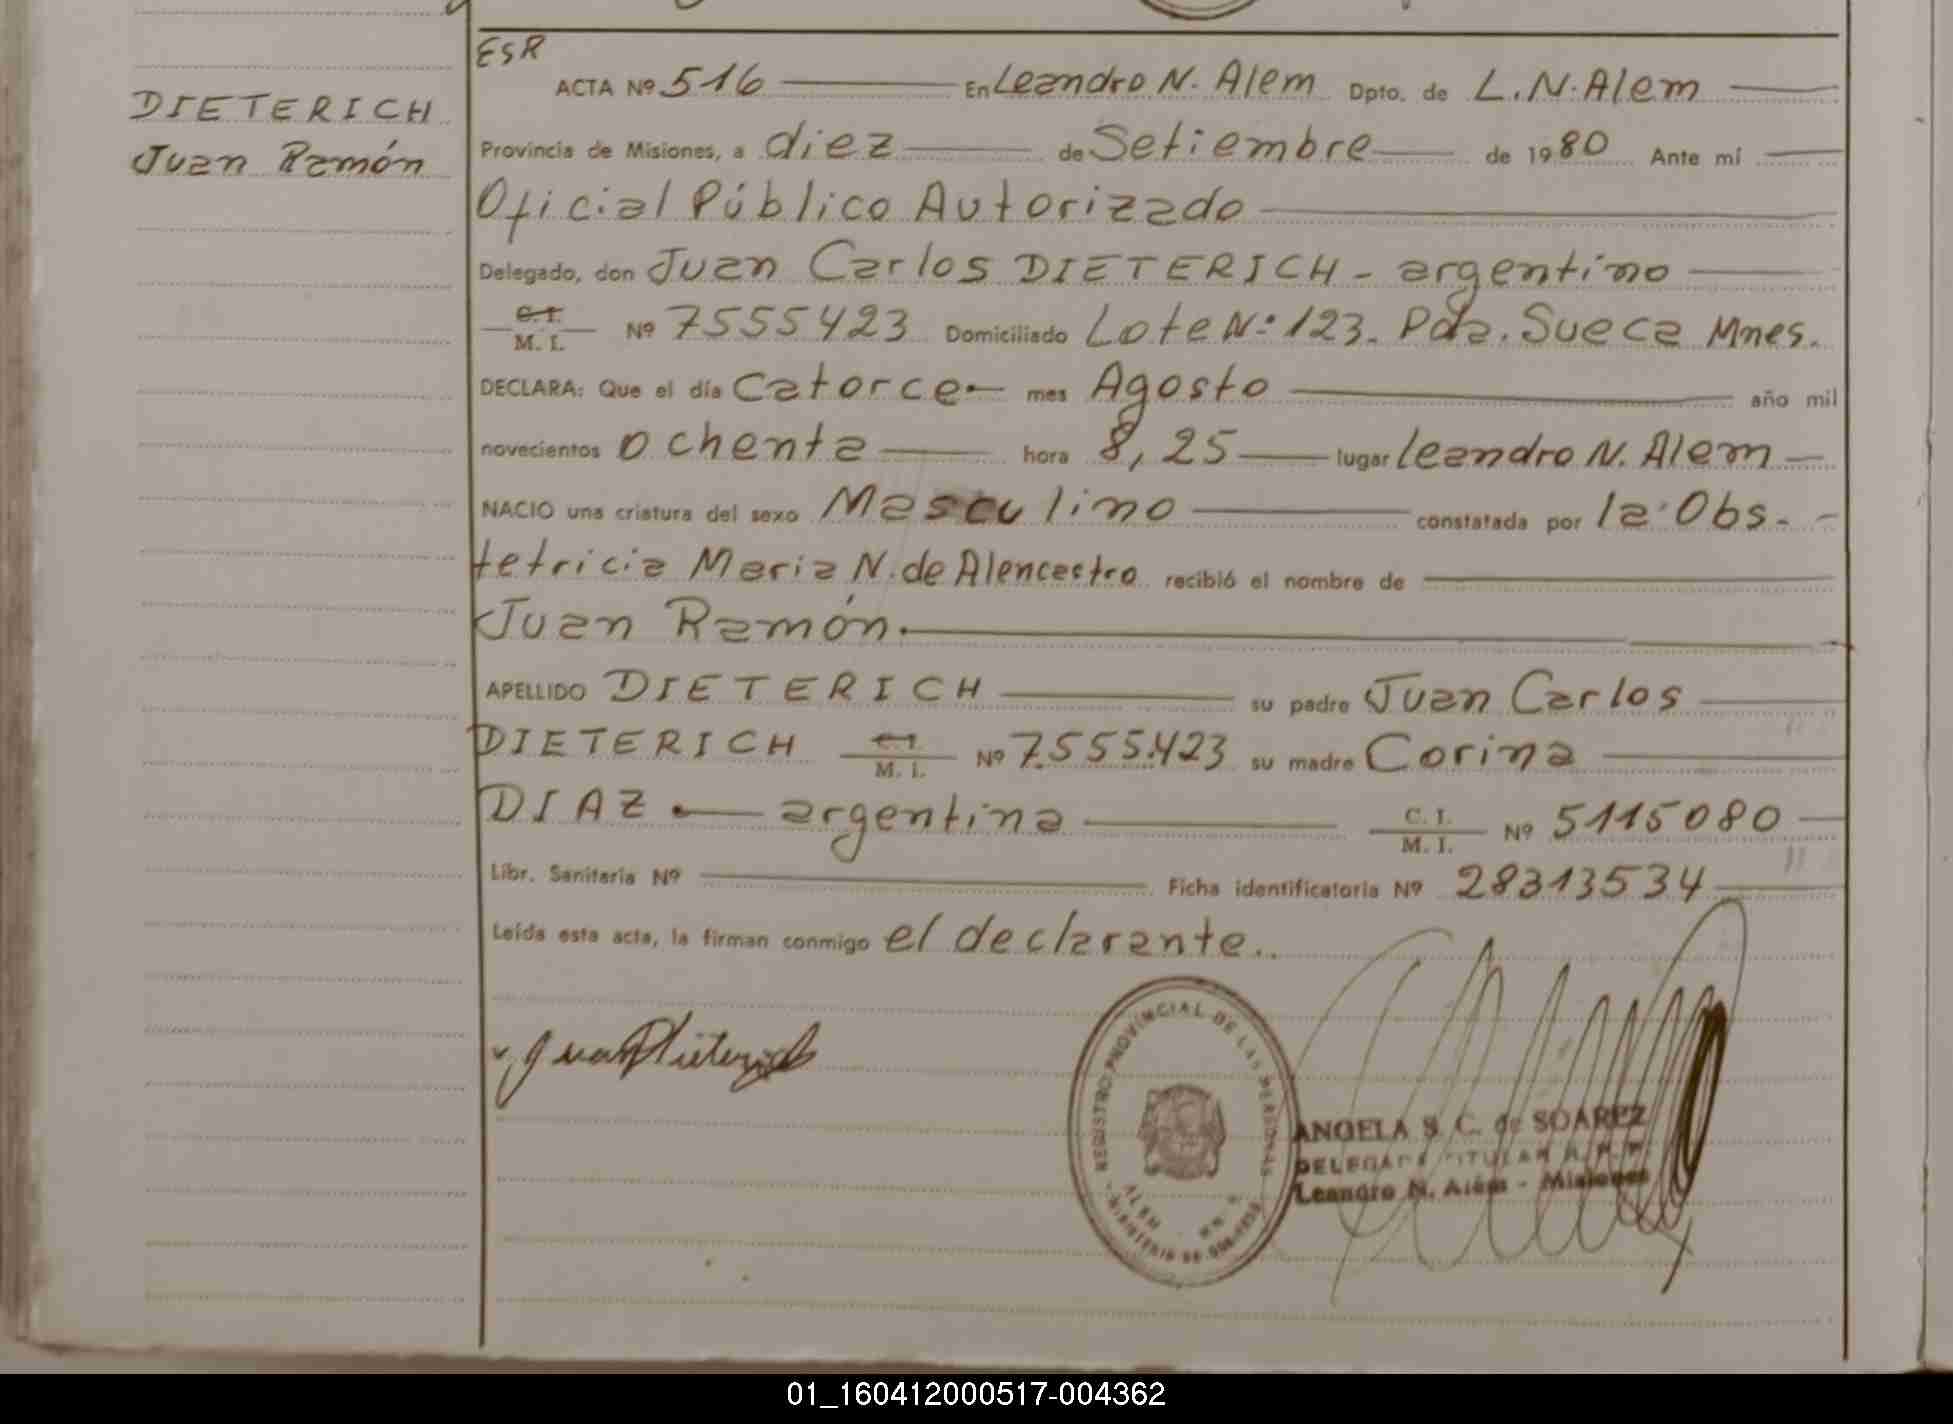 ESR
DIETERICH
Juan Ramón
ACTA Nº 516 En Leandro N. Alem Dpto. de L.N.Alem
Provincia de Misiones, a diez de Setiembre de 1980 Ante mí
Oficial Público Autorizado
Delegado, don Juan Carlos DIETERICH - argentino
C.I. M. I. Nº 7555423 Domiciliado Lote Nº 123. Pda. Sueca Mnes.
DECLARA: Que el día Catorce mes Agosto año mil
novecientos ochenta hora 8,25 lugar Leandro N. Alem
NACIO una criatura del sexo Masculino constatada por la Obs-
tetricia Maria N. de Alencastro recibió el nombre de
Juan Ramón.
APELLIDO DIETERICH su padre Juan Carlos
DIETERICH C.I. M. I. Nº 7.555.423 su madre Corina
DIAZ argentina C. I. M. I. Nº 5115080
Libr. Sanitaria Nº Ficha identificatoria Nº 28313534
Leída esta acta, la firman conmigo el declarante..
Juan Dieterich
REGISTRO PROVINCIAL DE LAS PERSONAS
ALEM
MINISTERIO DE GOBIERNO
ANGELA S. C. de SOAREZ
DELEGADA TITULAR R. P. P.
Leandro N. Alem - Misiones
01_160412000517-004362